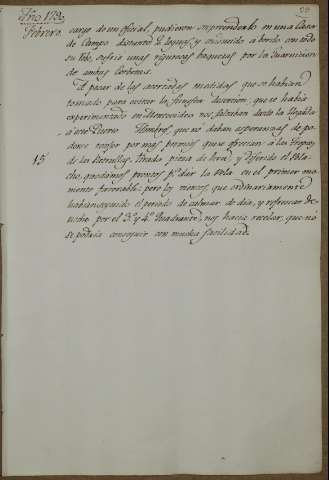 Año 1790
Febrero
29
cargo de un oficial, pudieron sorprenderlo en una Casa
de Campo distante 2 leguas, y conducido a bordo con todo
su , sufrir unas rigurosas baquetas por la Guarnicion
de ambas Corbetas.
A pesar de las acertadas medidas que se habian
tomado para evitar la funesta desercion, que se habia
experimentado en Montevideo nos faltaban desde la llegada
a este Puerto Hombres, que no daban esperanzas de po-
derse coxer por mas premios que se ofrecian a las Tropas
de las Patrullas. Tirada pieza de leva, y Diferido el Vela-
15
cho, quedamos prontos pa. dar la vela en el primer mo-
mento favorable: pero los vientos, que ordinariamente
habian seguido el periodo de calmar de dia, y refrescar de
noche por el 3º y 4º Quadrante, nos hacia recelar, que no
se podria conseguir con mucha facilidad.